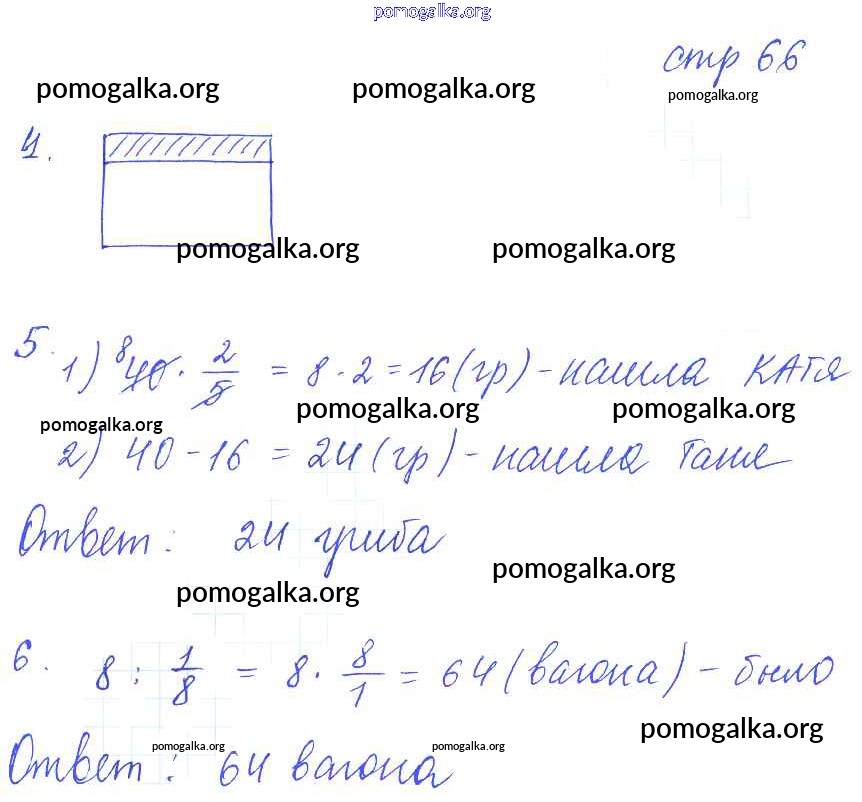 pomogalka.org
стр 66
pomogalka.org pomogalka.org pomogalka.org
4.
pomogalka.org pomogalka.org
5. 1) 8 40 · 2/5 = 8 · 2 = 16 (гр) - нашла Катя
pomogalka.org pomogalka.org
pomogalka.org
2) 40 - 16 = 24 (гр) - нашла Таня
Ответ: 24 гриба
pomogalka.org
pomogalka.org
6. 8 : 1/8 = 8 · 8/1 = 64 (вагона) - было
pomogalka.org
pomogalka.org pomogalka.org
Ответ: 64 вагона